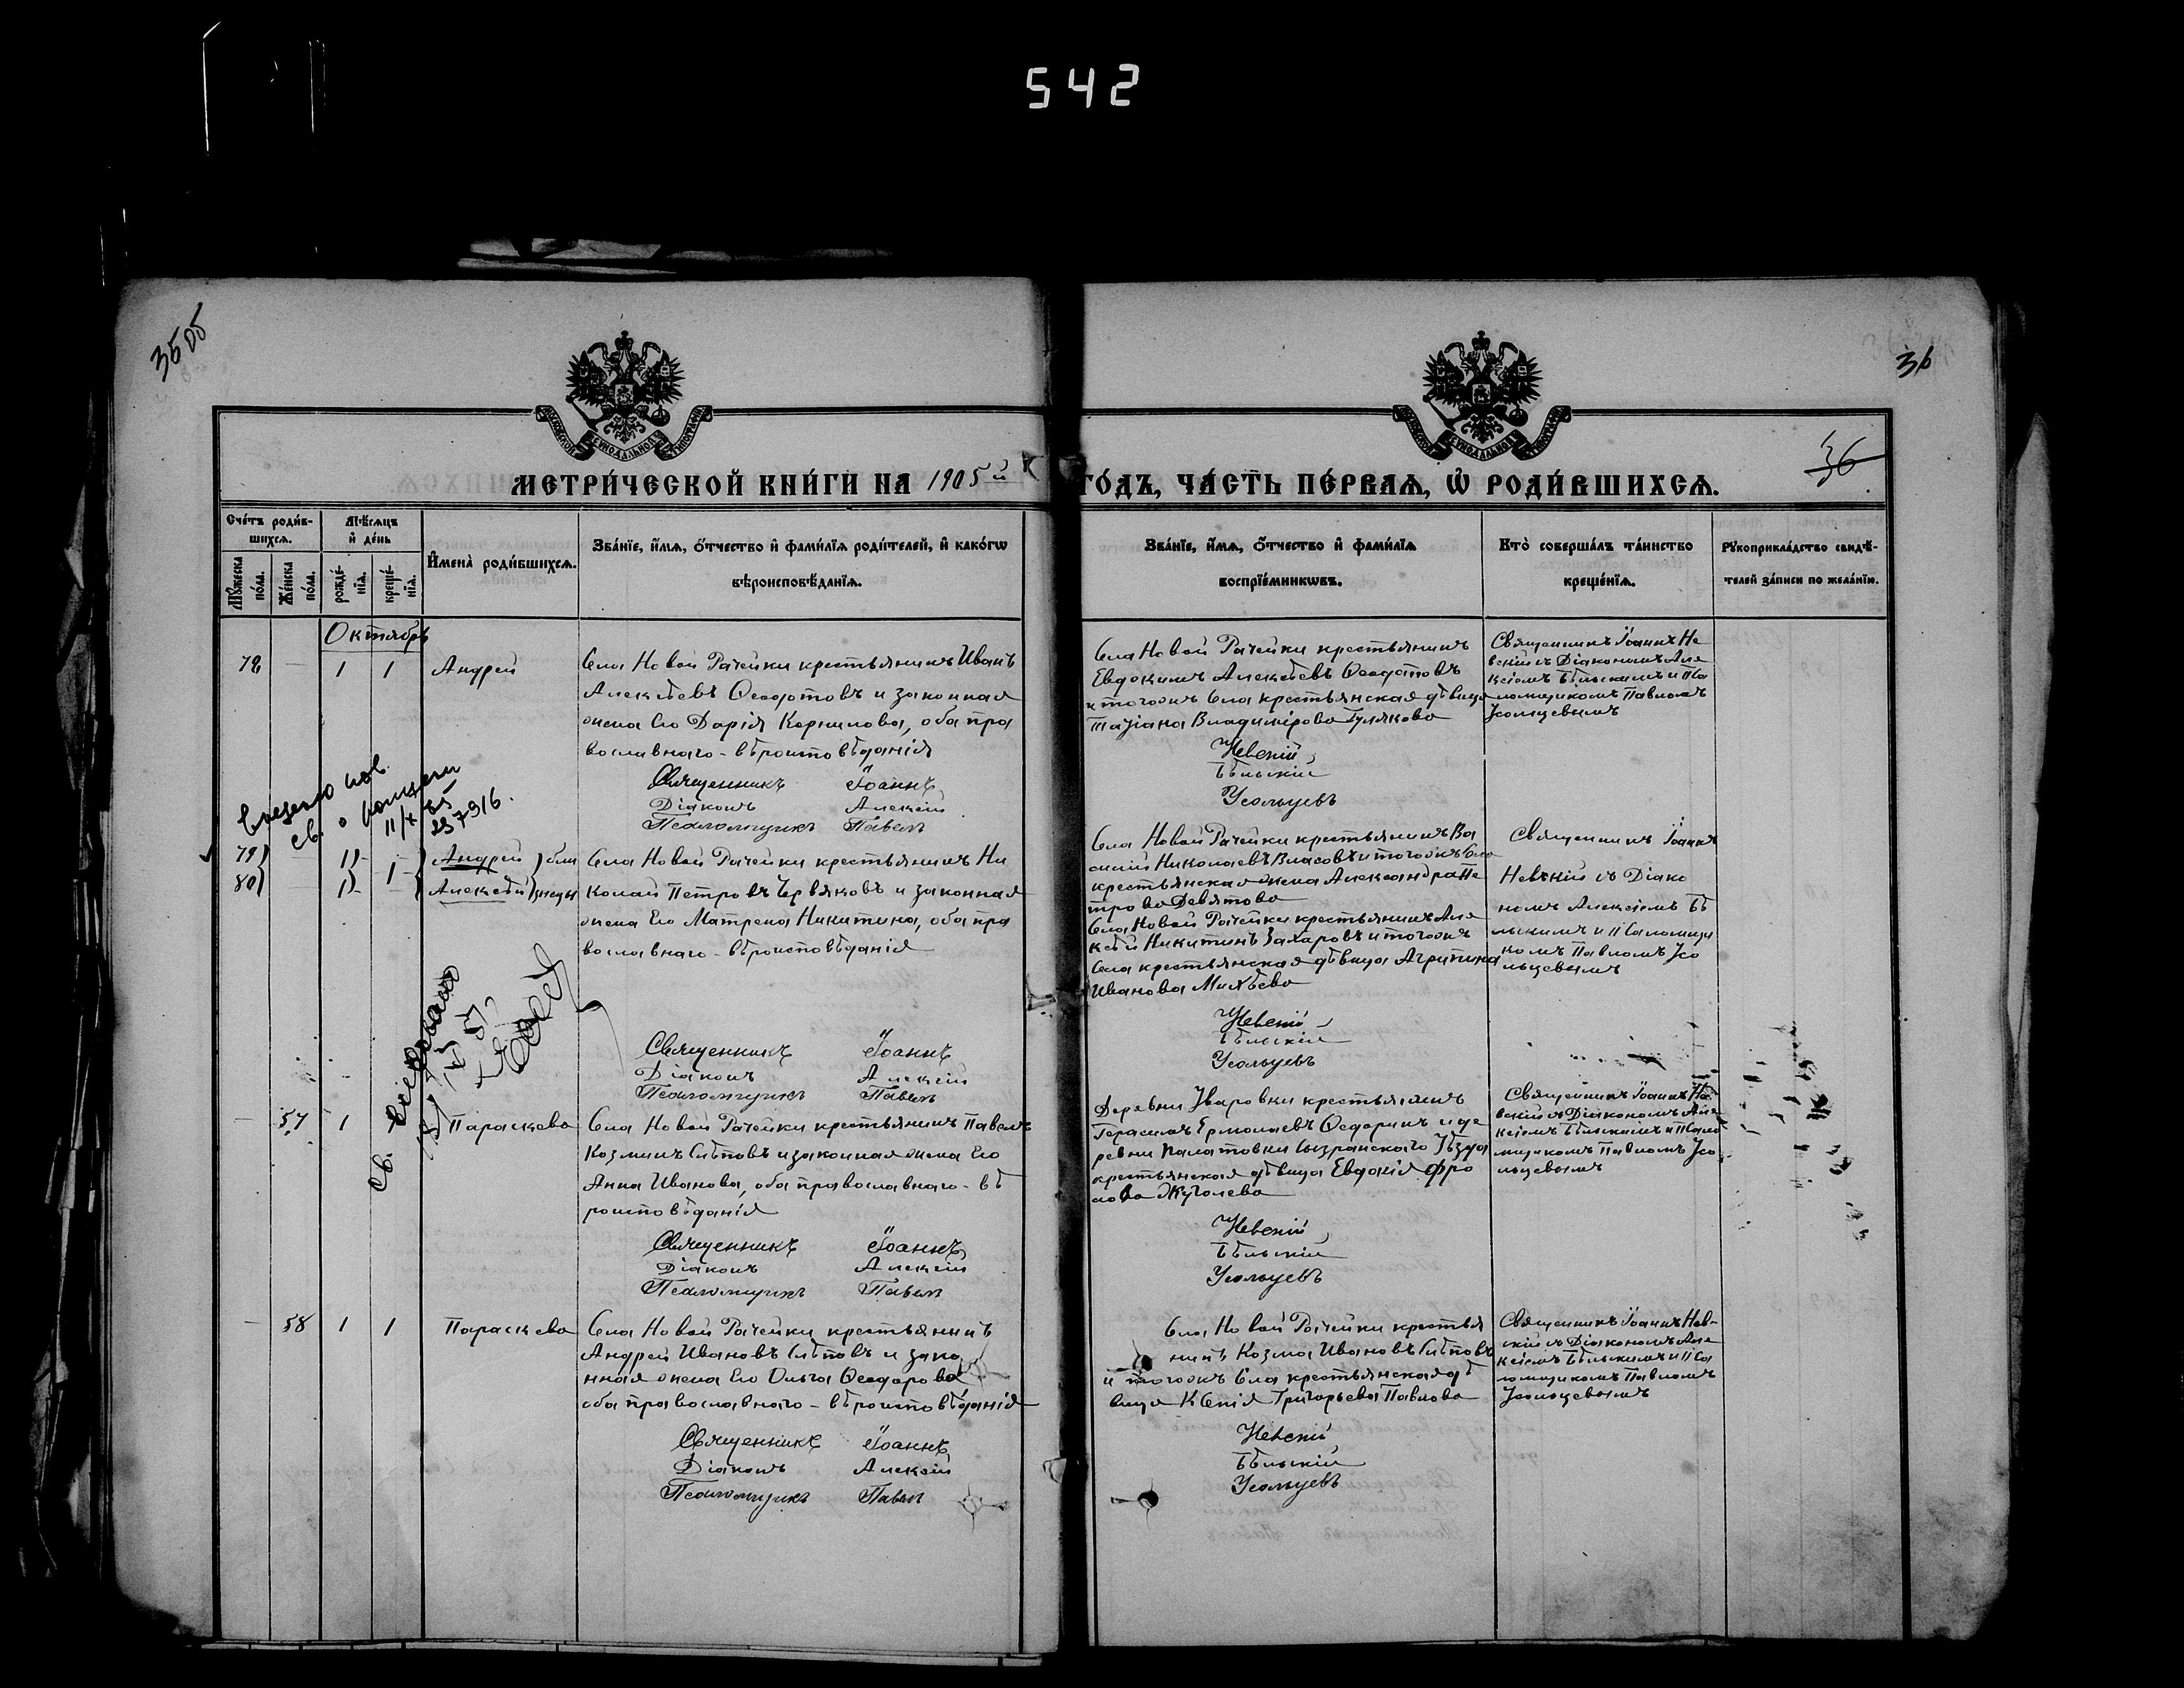 542
35об
36
36
МЕТРИЧЕСКОЙ КНИГИ НА 1905й
ГОДЪ, ЧАСТЬ ПЕРВАЯ, Ѡ РОДИВШИХСЯ.
Счетъ родив-
шихся.
Мужеска пола.
Женска пола.
Мѣсяцъ
и день
рожде-
нїя.
креще-
нїя.
Имена родившихся.
Званїе, имя, отчество и фамилїя родителей, и какогѡ
вѣроисповѣданїя.
Званїе, имя, отчество и фамилїя
воспрїемникѡвъ.
Кто совершалъ таинство
крещенїя.
Рукоприкладство свидѣ-
телей записи по желанїю.
Октябрь
78 — 1 1 Андрей
Села Новой Рачейки крестьянинъ Иванъ
Алексѣевъ Ѳеодотовъ и законная
жена его Дарія Корнилова, оба пра
вославнаго - вѣроисповѣданія
Священникъ Іоаннъ
Діаконъ Алексій
Псаломщикъ Павелъ
Села Новой Рачейки крестьянинъ
Евдокимъ Алексѣевъ Ѳеодотовъ
и тогожъ Села крестьянская дѣвица
Татіана Владимірова Гулякова
Невскій
Бѣльскій
Усольцевъ
Священникъ Іоаннъ Не
вскій съ Діакономъ Але
ксіемъ Бѣльскимъ и Пса
ломщикомъ Павломъ
Усольцевымъ
79 — 1 Андрей
80 — 1 1 Алексѣй
близ
нецы
Села Новой Рачейки крестьянинъ Ни
колай Петровъ Червяковъ и законная
жена Его Матрена Никитина, оба пра
вославнаго - вѣроисповѣданія
Священникъ Іоаннъ
Діаконъ Алексій
Псаломщикъ Павелъ
Села Новой Рачейки крестьянинъ Ва
силій Николаевъ Власовъ и тогожъ Села
крестьянская жена Александра Пе
трова Девятова
Села Новой Рачейки крестьянинъ Але
ксѣй Никитинъ Захаровъ и тогожъ
Села крестьянская дѣвица Агрипина
Иванова Михѣева
Невскій
Бѣльскій
Усольцевъ
Священникъ Іоаннъ
Невскій съ Діако
номъ Алексіемъ Бѣ
льскимъ и Псаломщи
комъ Павломъ Усо
льцевымъ
— 57 1 Параскева
Села Новой Рачейки крестьянинъ Павелъ
Козминъ Слѣповъ и законная жена Его
Анна Иванова, оба православнаго - вѣ
роисповѣданія
Священникъ Іоаннъ
Діаконъ Алексій
Псаломщикъ Павелъ
Деревни Уваровки крестьянинъ
Герасимъ Ермолаевъ Ѳедоринъ и де
ревни Палатовки Сызранскаго Уѣзда
крестьянская дѣвица Евдокія Фро
лова Жуголева
Невскій
Бѣльскій
Усольцевъ
Священникъ Іоаннъ Не
вскій съ Діакономъ Але
ксіемъ Бѣльскимъ и Псало
мщикомъ Павломъ Усо
льцевымъ
— 58 1 1 Параскева
Села Новой Рачейки крестьянинъ
Андрей Ивановъ Слѣповъ и зако
нная жена Его Ольга Ѳеодорова
оба православнаго - вѣроисповѣданія
Священникъ Іоаннъ
Діаконъ Алексій
Псаломщикъ Павелъ
Села Новой Рачейки крестья
нинъ Козма Ивановъ Слѣповъ
и тогожъ Села крестьянская дѣ
вица Ксенія Григорьева Павлова
Невскій
Бѣльскій
Усольцевъ
Священникъ Іоаннъ Нев-
скій съ Діакономъ Але
ксіемъ Бѣльскимъ и Пса
ломщикомъ Павломъ
Усольцевымъ